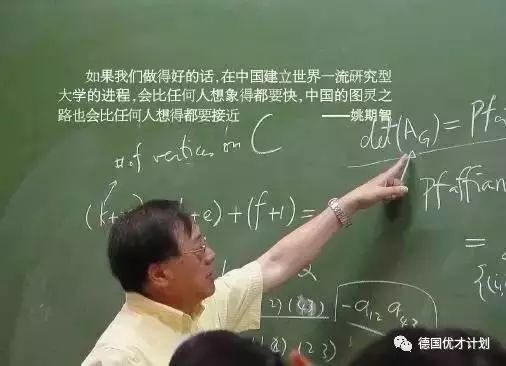 如果我们做得好的话，在中国建立世界一流研究型
大学的进程，会比任何人想象得都要快，中国的图灵之
路也会比任何人想得都要接近 ——姚期智
# of vertices in C
det(A_G) = Pfa
Pfaffian
+ (f+1) =
=
2
-a_12 a_4
德国优才计划